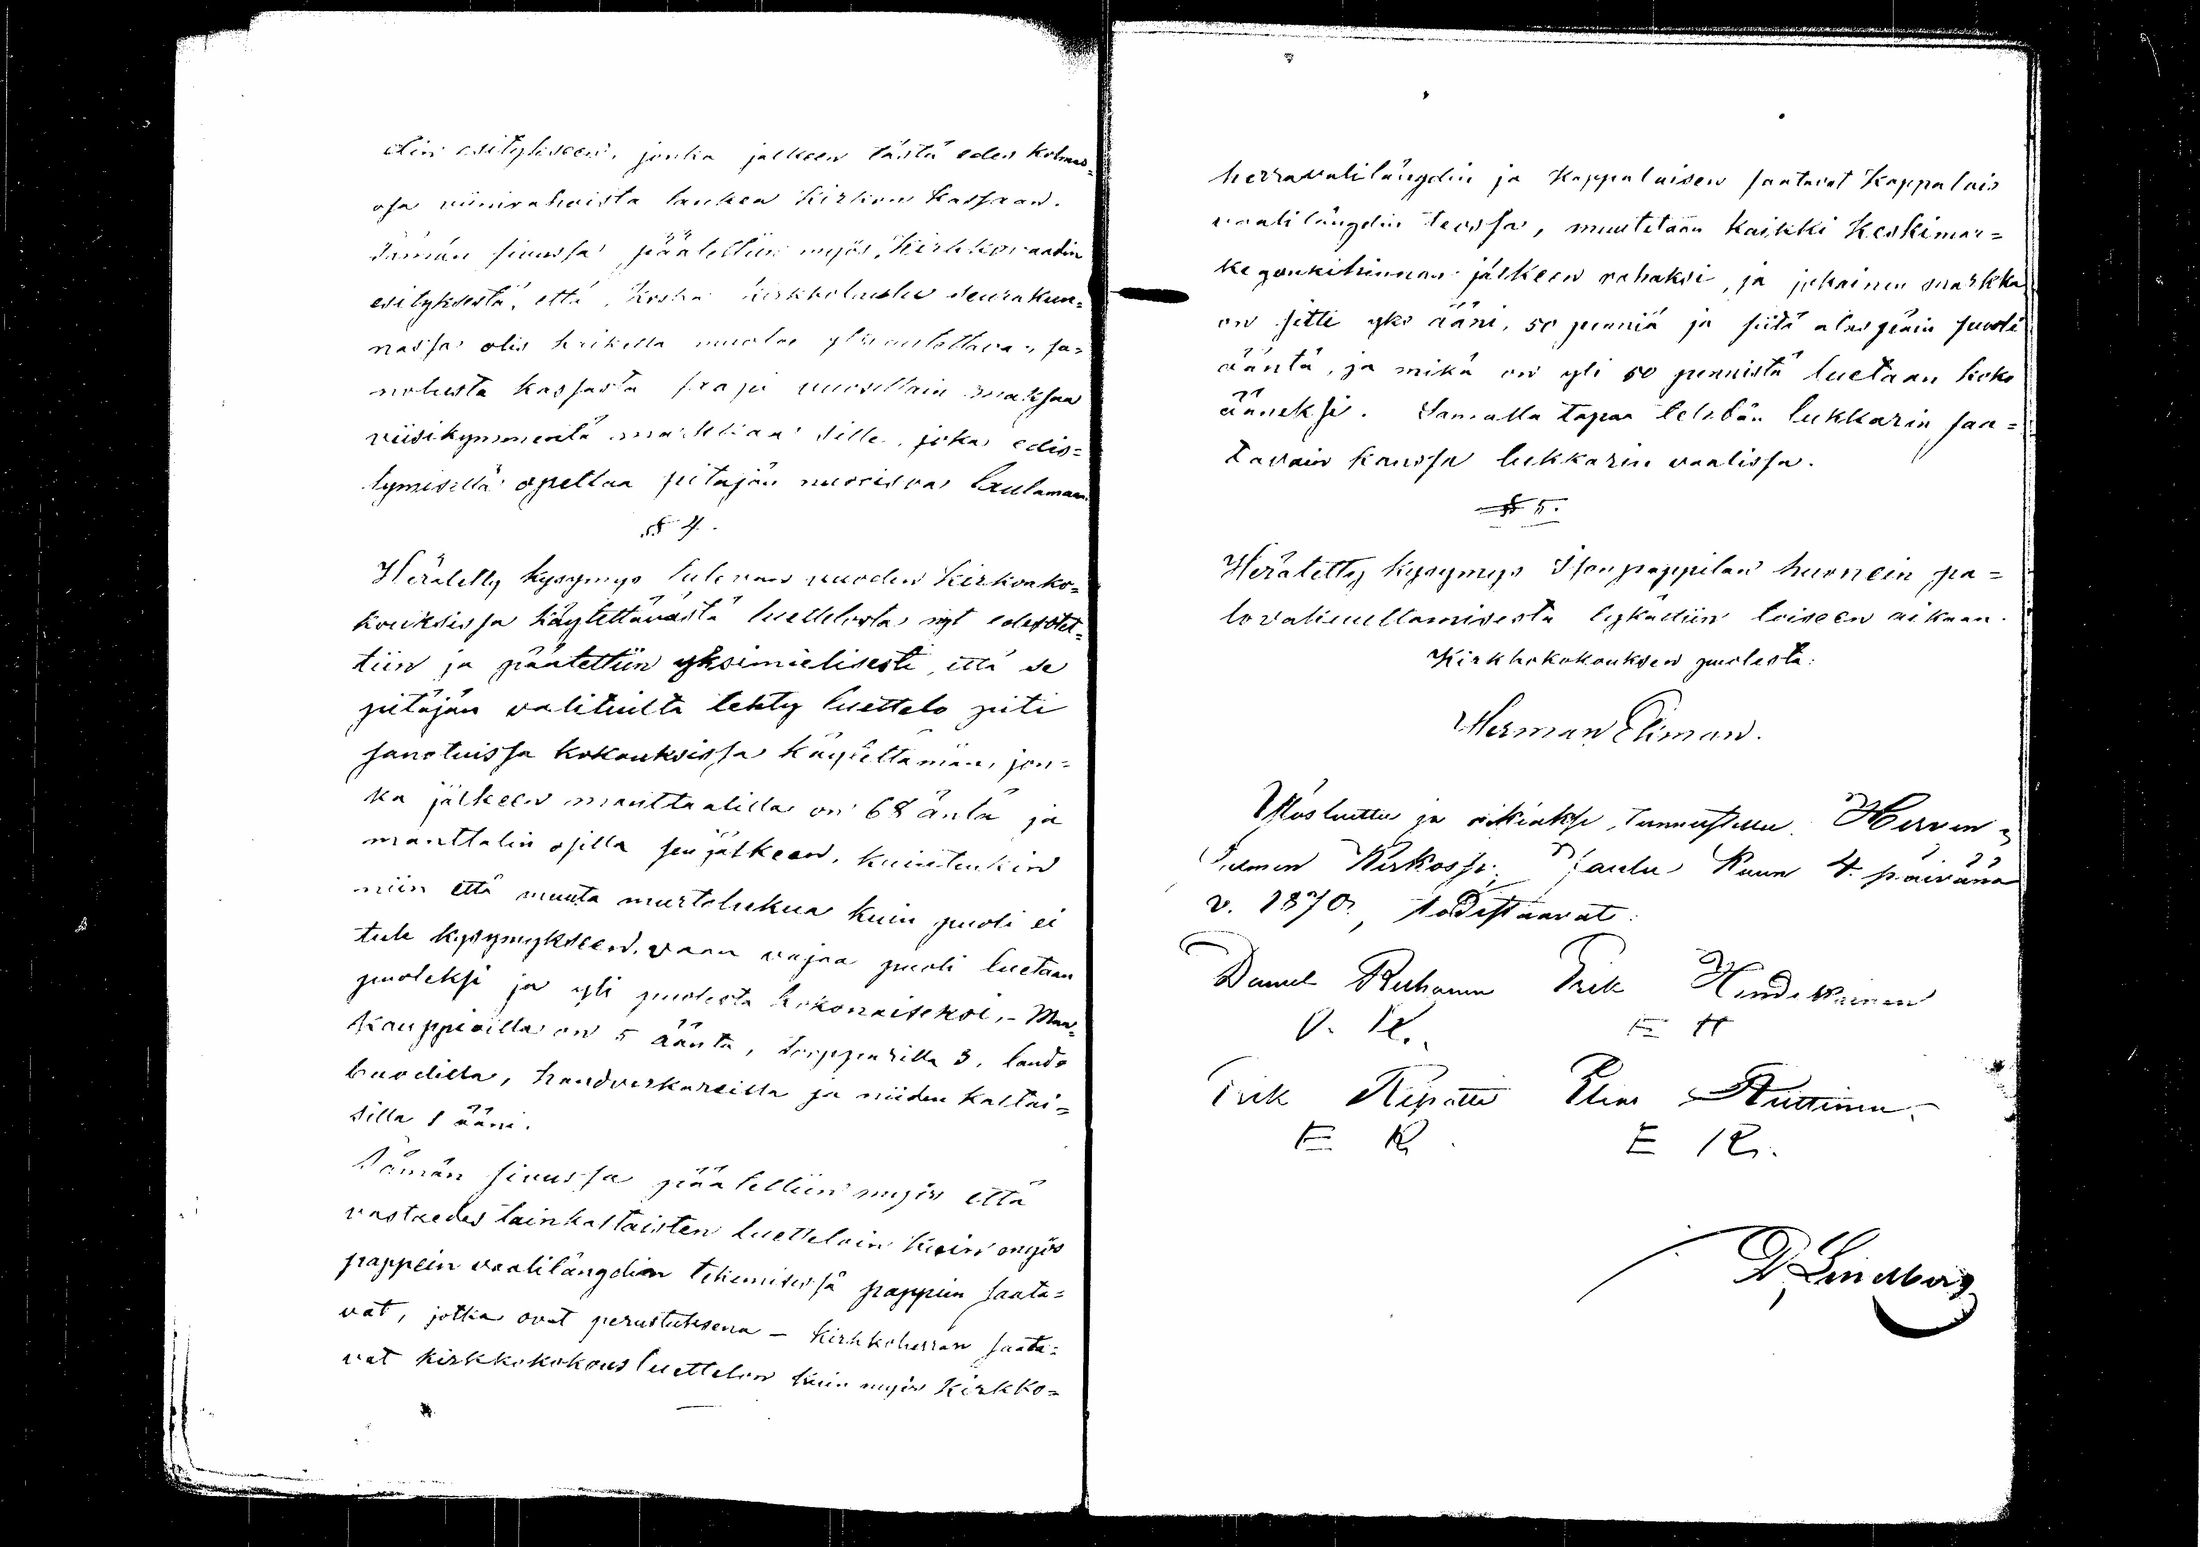 din esitykseen, jonka jälkeen tästä edes kolmas=
osa viinirahoista lankea Kirkon kassaan.
Tämän sivussa päätettiin myös, Kirkkoraadin
esityksestä, että, koska kirkkolaulu seurakun=
nassa olis kaikella muotoa ylösautettava, sa=
notusta kassasta saapi vuosittain maksaa
viisikymmentä markkaa sille, joka edis=
tymisellä opettaa pitäjän nuorisoa laulamaan.
§ 4.
Herätetty kysymys tulevan vuoden Kirkonko=
kouksissa käytettävästä luettelosta nyt edesotet=
tiin ja päätettiin yksimielisesti, että se
pitäjän valituilta tehty luettelo piti
sanotuissa kokouksissa käytettämän, jon=
ka jälkeen manttaalilla on 68 äntä ja
manttalin osilla sen jälkeen, kuitenkin
niin että muuta murtolukua kuin puoli ei
tule kysymykseen, vaan vajaa puoli luetaan
puoleksi ja yli puolesta kokonaiseksi. - Maa=
kauppioilla on 5 ääntä, torpparilla 3, lands
buodilla, handverkareilla ja niiden kaltai=
silla 1 ääni.
Tämän sivussa päätettiin myös että
vastaedes tainkaltaisten luetteloin kuin myös
pappein vaalilängdion tekemisessä pappein saata=
vat, jotka ovat perustuksena - Kirkkoherran saata=
vat kirkkokokous luettelon kuin myös Kirkko=
herravalilängdin ja Kappalaisen saatavat Kappalais
vaalilängdin teossa, muutetaan kaikki Keskimar=
kegonkihinnan jälkeen rahaksi, ja jokainen markka
on sitte yks ääni, 50 penniä ja siitä alas päin puoli
ääntä, ja mikä on yli 50 pennistä luetaan koko
ääneksi. Samalla tapaa tehdän lukkarin saa=
tavain kanssa lukkarin vaalissa.
§ 5.
Herätetty kysymys Isonpappilan huonein pa=
lovakuuttamisesta lykättiin toiseen aikaan.
Kirkkokokouksen puolesta:
Herman Eliman.
Ylösluettu ja oikiaksi tunnustettu Hirven=
salmen Kirkossa, Joulu Kuun 4. päivänä
v. 1870, todistaavat:
Daniel Reehonen Erik Hendikäinen
D. R. E H
Erik Ripatti Elias Ruttinen
E R. E R.
D. Lindberg